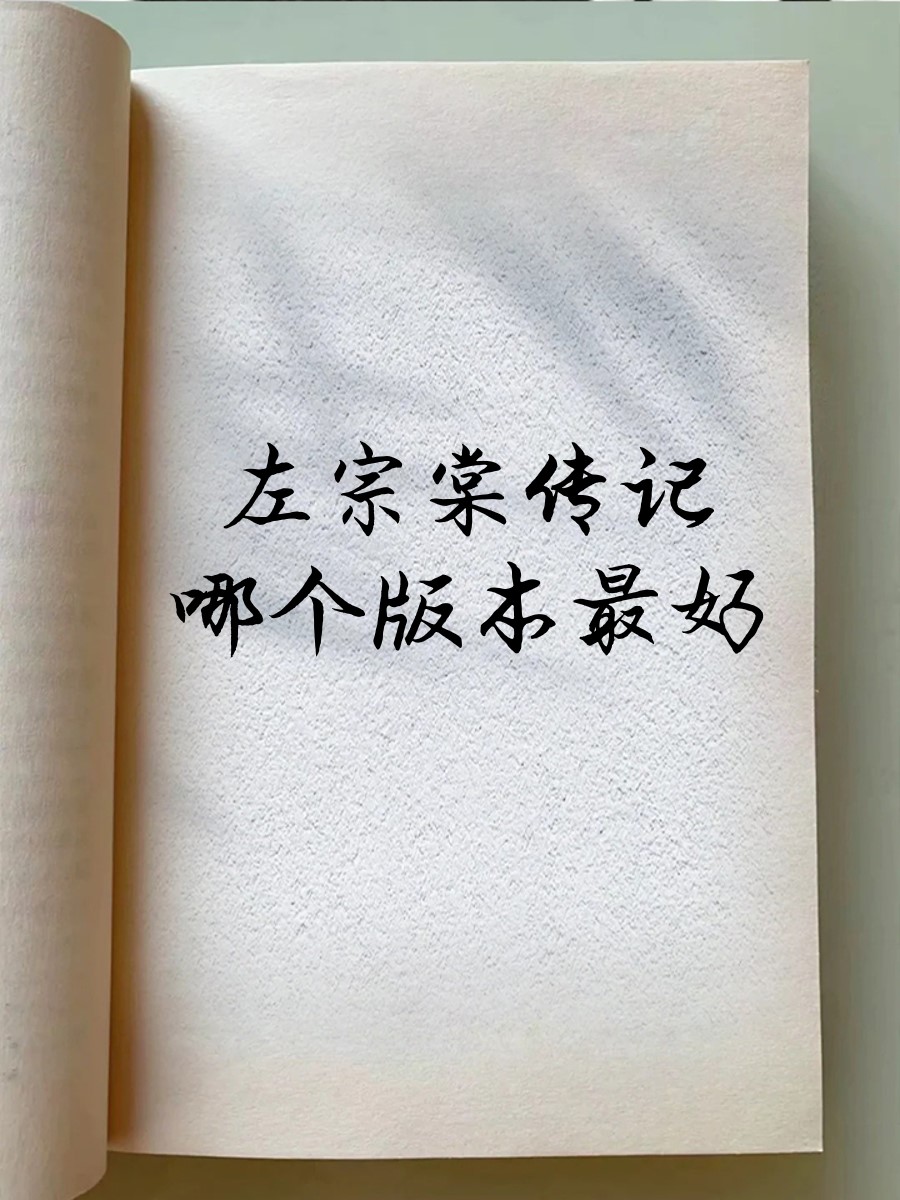 左宗棠传记
哪个版本最好